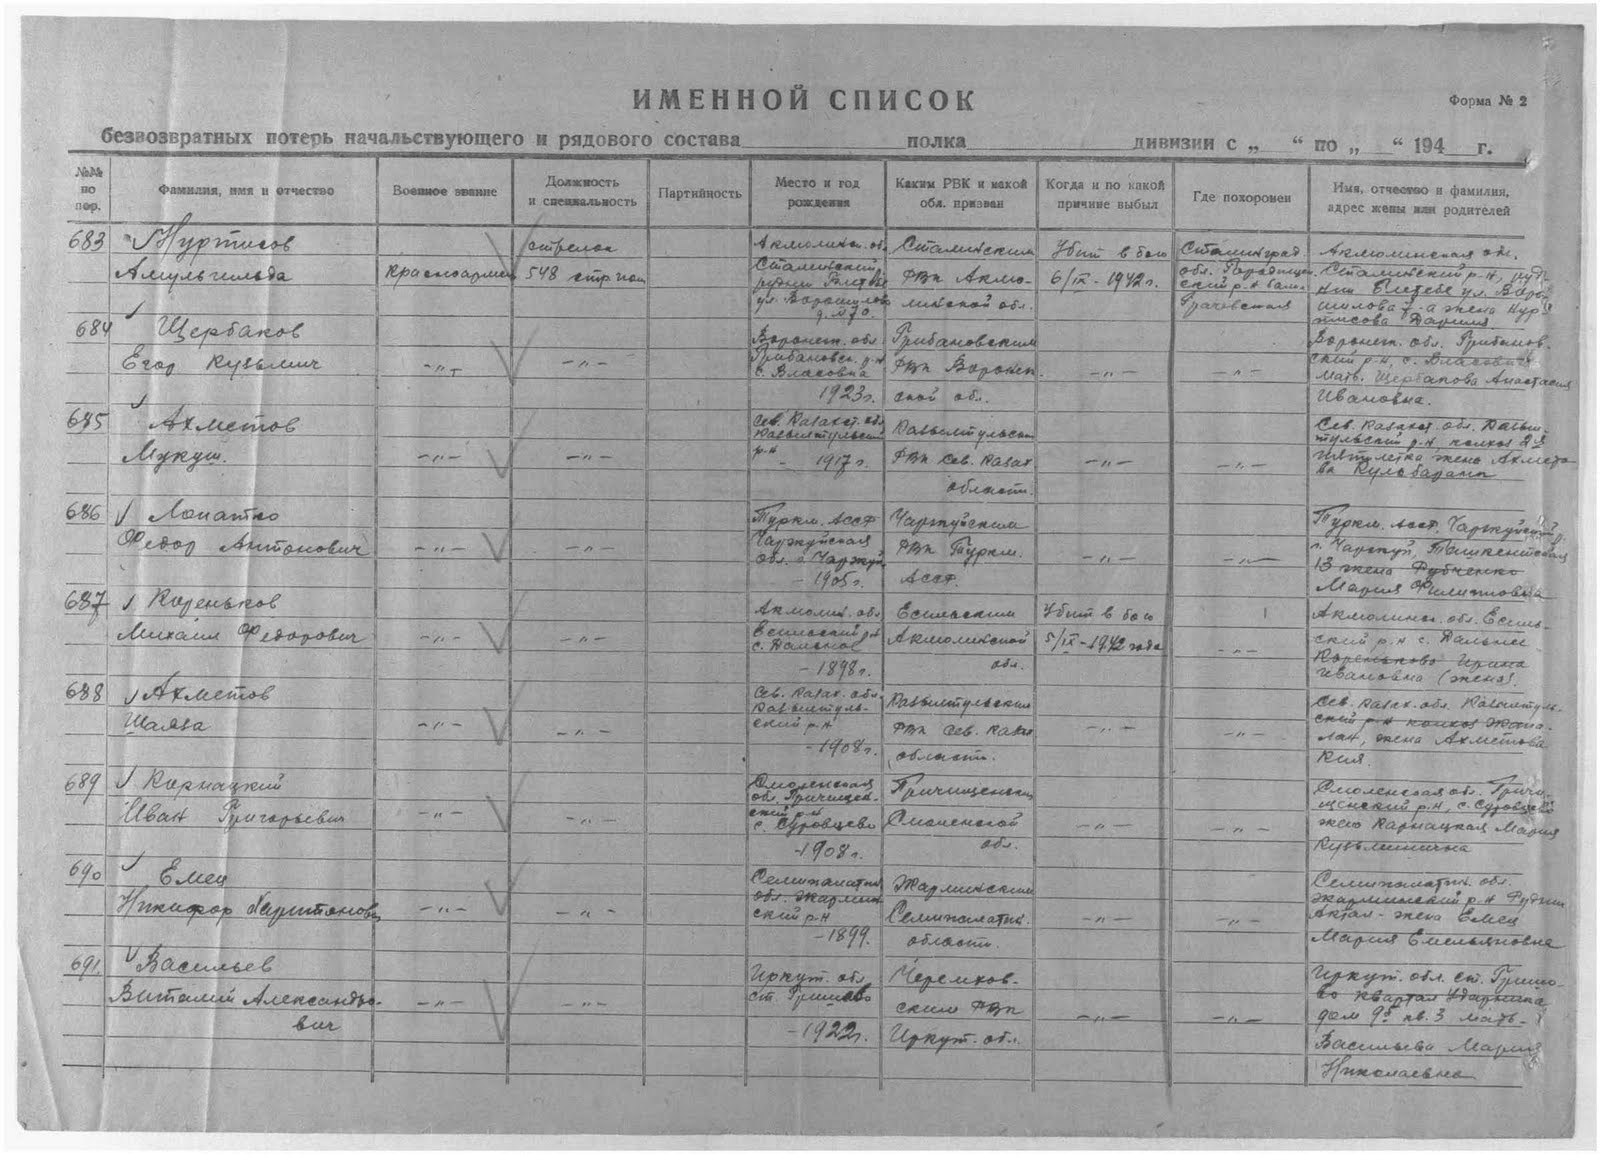 ИМЕННОЙ СПИСОК
Форма № 2
безвозвратных потерь начальствующего и рядового состава полка дивизии с „ “ по „ “ 194 г.
№№ по пор.
Фамилия, имя и отчество
Военное звание
Должность и специальность
Партийность
Место и год рождения
Каким РВК и какой обл. призван
Когда и по какой причине выбыл
Где похоронен
Имя, отчество и фамилия, адрес жены или родителей
683
Нуртисов
Амульгильда
Красноармеец
стрелок
548 стр. пол
Акмолинск. обл.
Сталинский
ул. Ворошилова
Сталинским
РВК Акмо-
линской обл.
Убит в бою
6/IX-1942г.
Сталинград.
обл. Городищен
ский р.н балка
Грачевская
Акмолинская обл.
Сталинский р.н, руд-
ник ул. Воро-
шилова 7-а жена Нур-
тисова Дариля
684
Щербаков
Егор Кузьмич
-„-
-„-
Воронеж. обл.
Грибановск. р.н
с. Власовка
1923г.
Грибановским
РВК Воронеж
ской обл.
-„-
-„-
Воронеж. обл. Грибанов.
ский р.н, с. Власовка
мать. Щербакова Анастасия
Ивановна.
685
Ахметов
Мукуш.
-„-
-„-
Сев. Казахст. обл.
р-н
- 1917г.
РВК Сев. Казах
области.
-„-
-„-
Сев. Казахст. обл.
тульский р.н, колхоз 2я
пятилетка жена Ахмето-
ва Кульбадами
686
Лопатко
Федор Антонович
-„-
-„-
Туркм. АССР
Чаржуйская
обл. г. Чаржуй
- 1905г.
Чаржуйским
РВК Туркм.
АССР.
-„-
-„-
Туркм. АССР. Чаржуйский р.
г. Чаржуй, Ташкентская
13 жена Рубченко
Мария Филипповна
687
Кореньков
Михаил Федорович
-„-
-„-
Акмолин. обл.
Есильский р.н
с. Дальное
- 1898г.
Есильским
Акмолинской
обл.
Убит в бою
5/IX-1942 года
-„-
Акмолинск. обл. Есиль-
ский р.н с. Дальнее
Коренькова Ирина
Ивановна (жена).
688
Ахметов
Шаяза
-„-
-„-
Сев. Казах. обл.
ский р.н
- 1908г.
РВК Сев. Казах
области.
-„-
-„-
Сев. Казах. обл.
ский р.н колхоз Жана-
лан, жена Ахметова
Кия.
689
Карнацкий
Иван Григорьевич
-„-
-„-
Смоленская
обл.
ский р.н
с. Суровцево
-1908г.
Смоленской
обл.
-„-
-„-
Смоленская обл.
щенский р.н, с. Суровцево
жена Карнацкая Мария
Кузьминична
690
Емец
Никифор Харитонович
-„-
-„-
Семипалатин
обл. Жармин
ский р-н
-1899.
Жарминским
Семипалатин.
области.
-„-
-„-
Семипалатин. обл.
Жарминский р.н Рудник
Актал - жена Емец
Мария Емельяновна
691.
Васильев
Виталий Александро-
вич
-„-
-„-
Иркут. обл
ст. Гришево
- 1922г.
Черемхов-
ским РВК
Иркут. обл.
-„-
-„-
Иркут. обл. ст. Гришо-
во квартал Ударника
дом 95 кв. 3 мать-
Васильева Мария
Николаевна